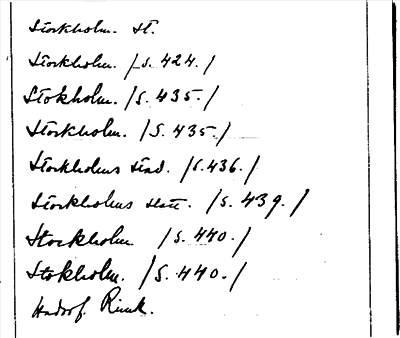 Stockholm. St.
Stockholm. /S. 424./
Stokholm. /S. 435./
Stockholm. /S. 435./
Stockholms stad. /S. 436./
Stockholms slott. /S. 439./
Stockholm /S. 440./
Stokholm. /S. 440./